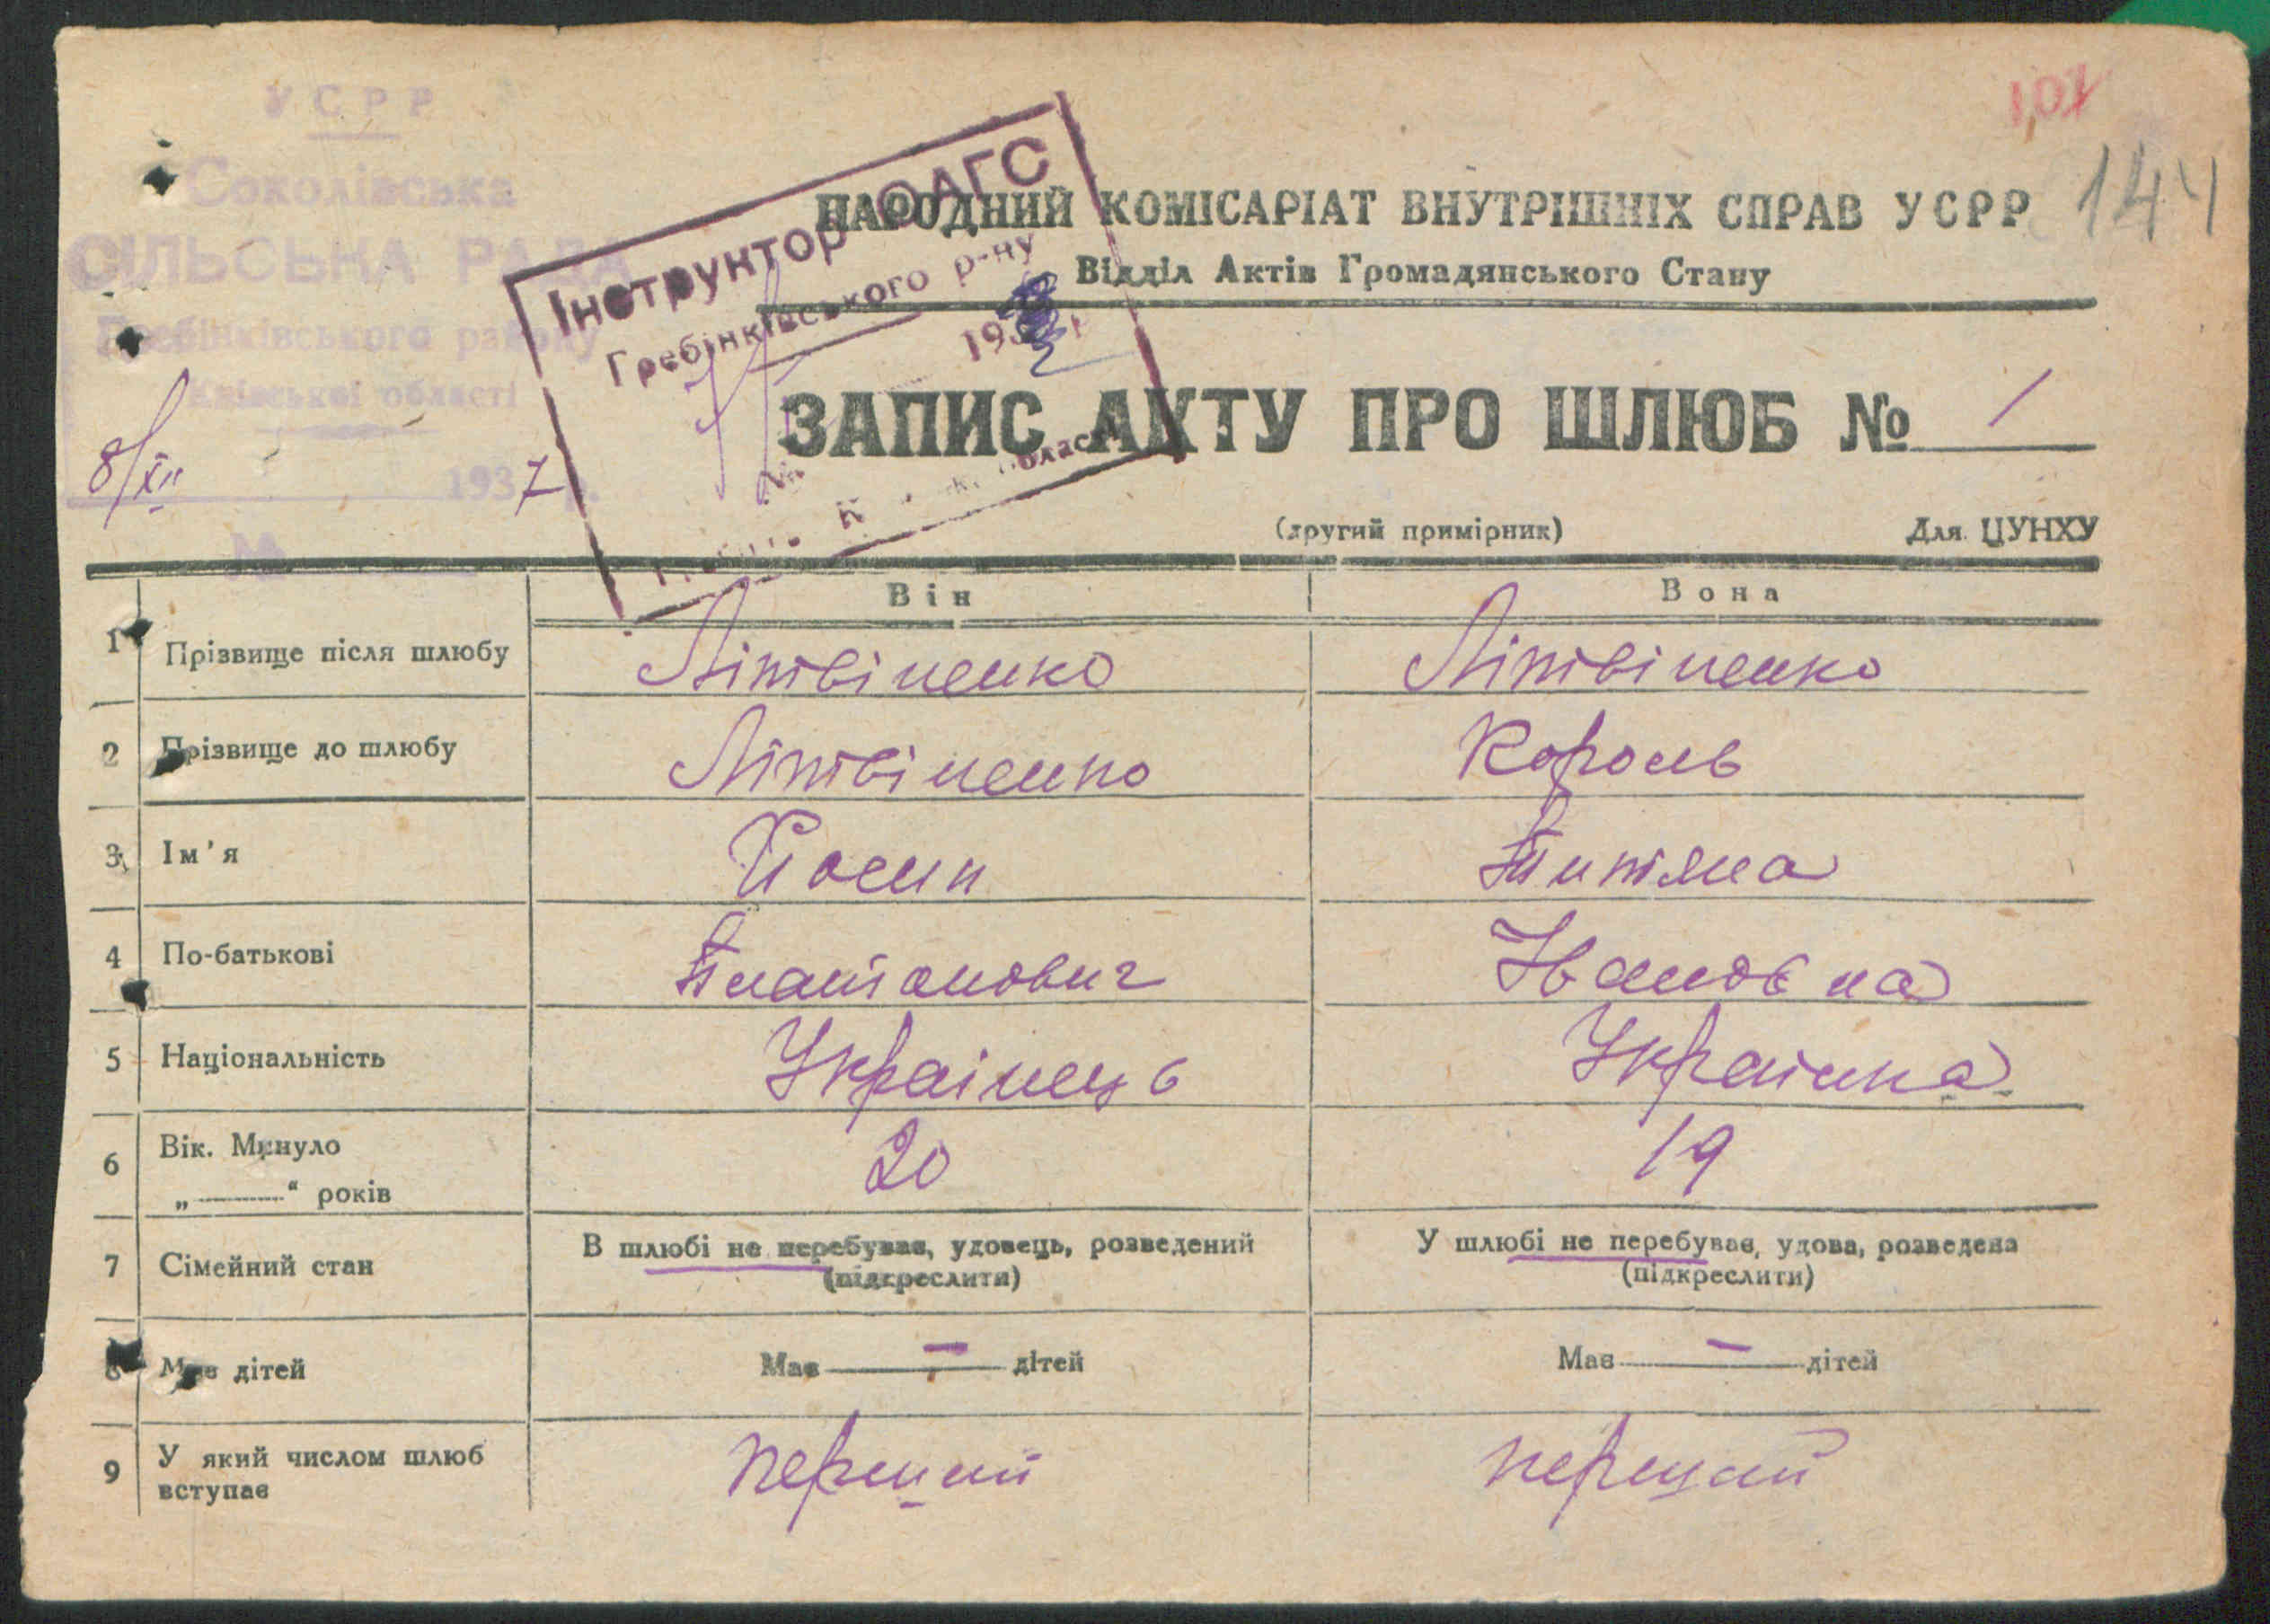 УСРР
Соколівська
СІЛЬСЬКА РАДА
Гребінківського району
Київської області
8/XII 1937 р.
№
Інструктор ОАГС
Гребінківського р-ну
193
області
107
144
НАРОДНИЙ КОМІСАРІАТ ВНУТРІШНІХ СПРАВ УСРР
Відділ Актів Громадянського Стану
ЗАПИС АКТУ ПРО ШЛЮБ № 1
(другий примірник) Для ЦУНХУ
Він Вона
1 Прізвище після шлюбу Літвіненко Літвіненко
2 Прізвище до шлюбу Літвіненко Король
3 Ім'я Йосип Титяна
4 По-батькові Платонович Івановна
5 Національність Украінець Украінка
6 Вік. Минуло 20 19
„ “ років
7 Сімейний стан В шлюбі не перебував, удовець, розведений У шлюбі не перебуває, удова, розведена
(підкреслити) (підкреслити)
8 Має дітей Має — дітей Має — дітей
9 У який числом шлюб перший перший
вступає